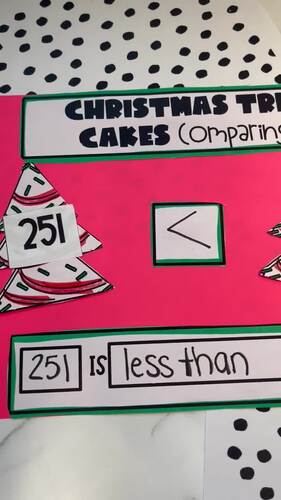 CHRISTMAS TR
CAKES Comparing
251
<
251 IS less than